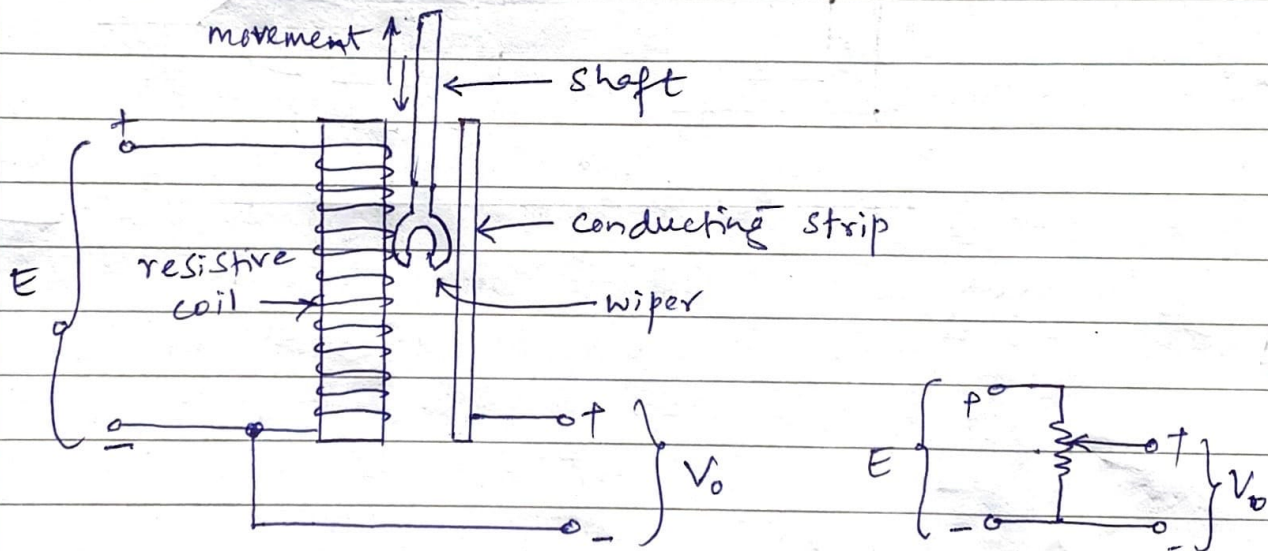 movement
shaft
+
conducting strip
E
resistive
coil
wiper
-
+
V₀
-
P
E
+
V₀
-
-